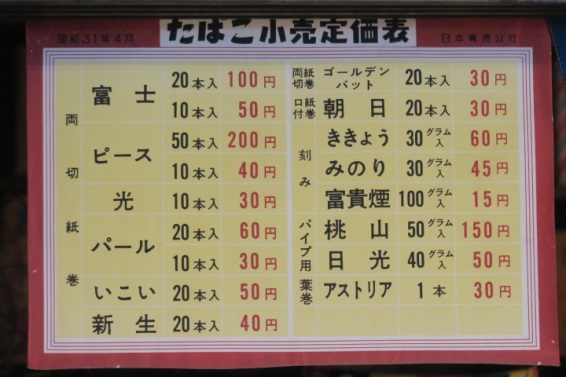 昭和31年4月 たばこ小売定価表 日本専売公社
両切紙巻
富士 20本入 100円
10本入 50円
ピース 50本入 200円
10本入 40円
光 10本入 30円
パール 20本入 60円
10本入 30円
いこい 20本入 50円
新生 20本入 40円
両切紙巻 ゴールデンバット 20本入 30円
口付紙巻 朝日 20本入 30円
刻み
ききょう 30グラム入 60円
みのり 30グラム入 45円
富貴煙 100グラム入 15円
パイプ用
桃山 50グラム入 150円
日光 40グラム入 50円
葉巻 アストリア 1本 30円